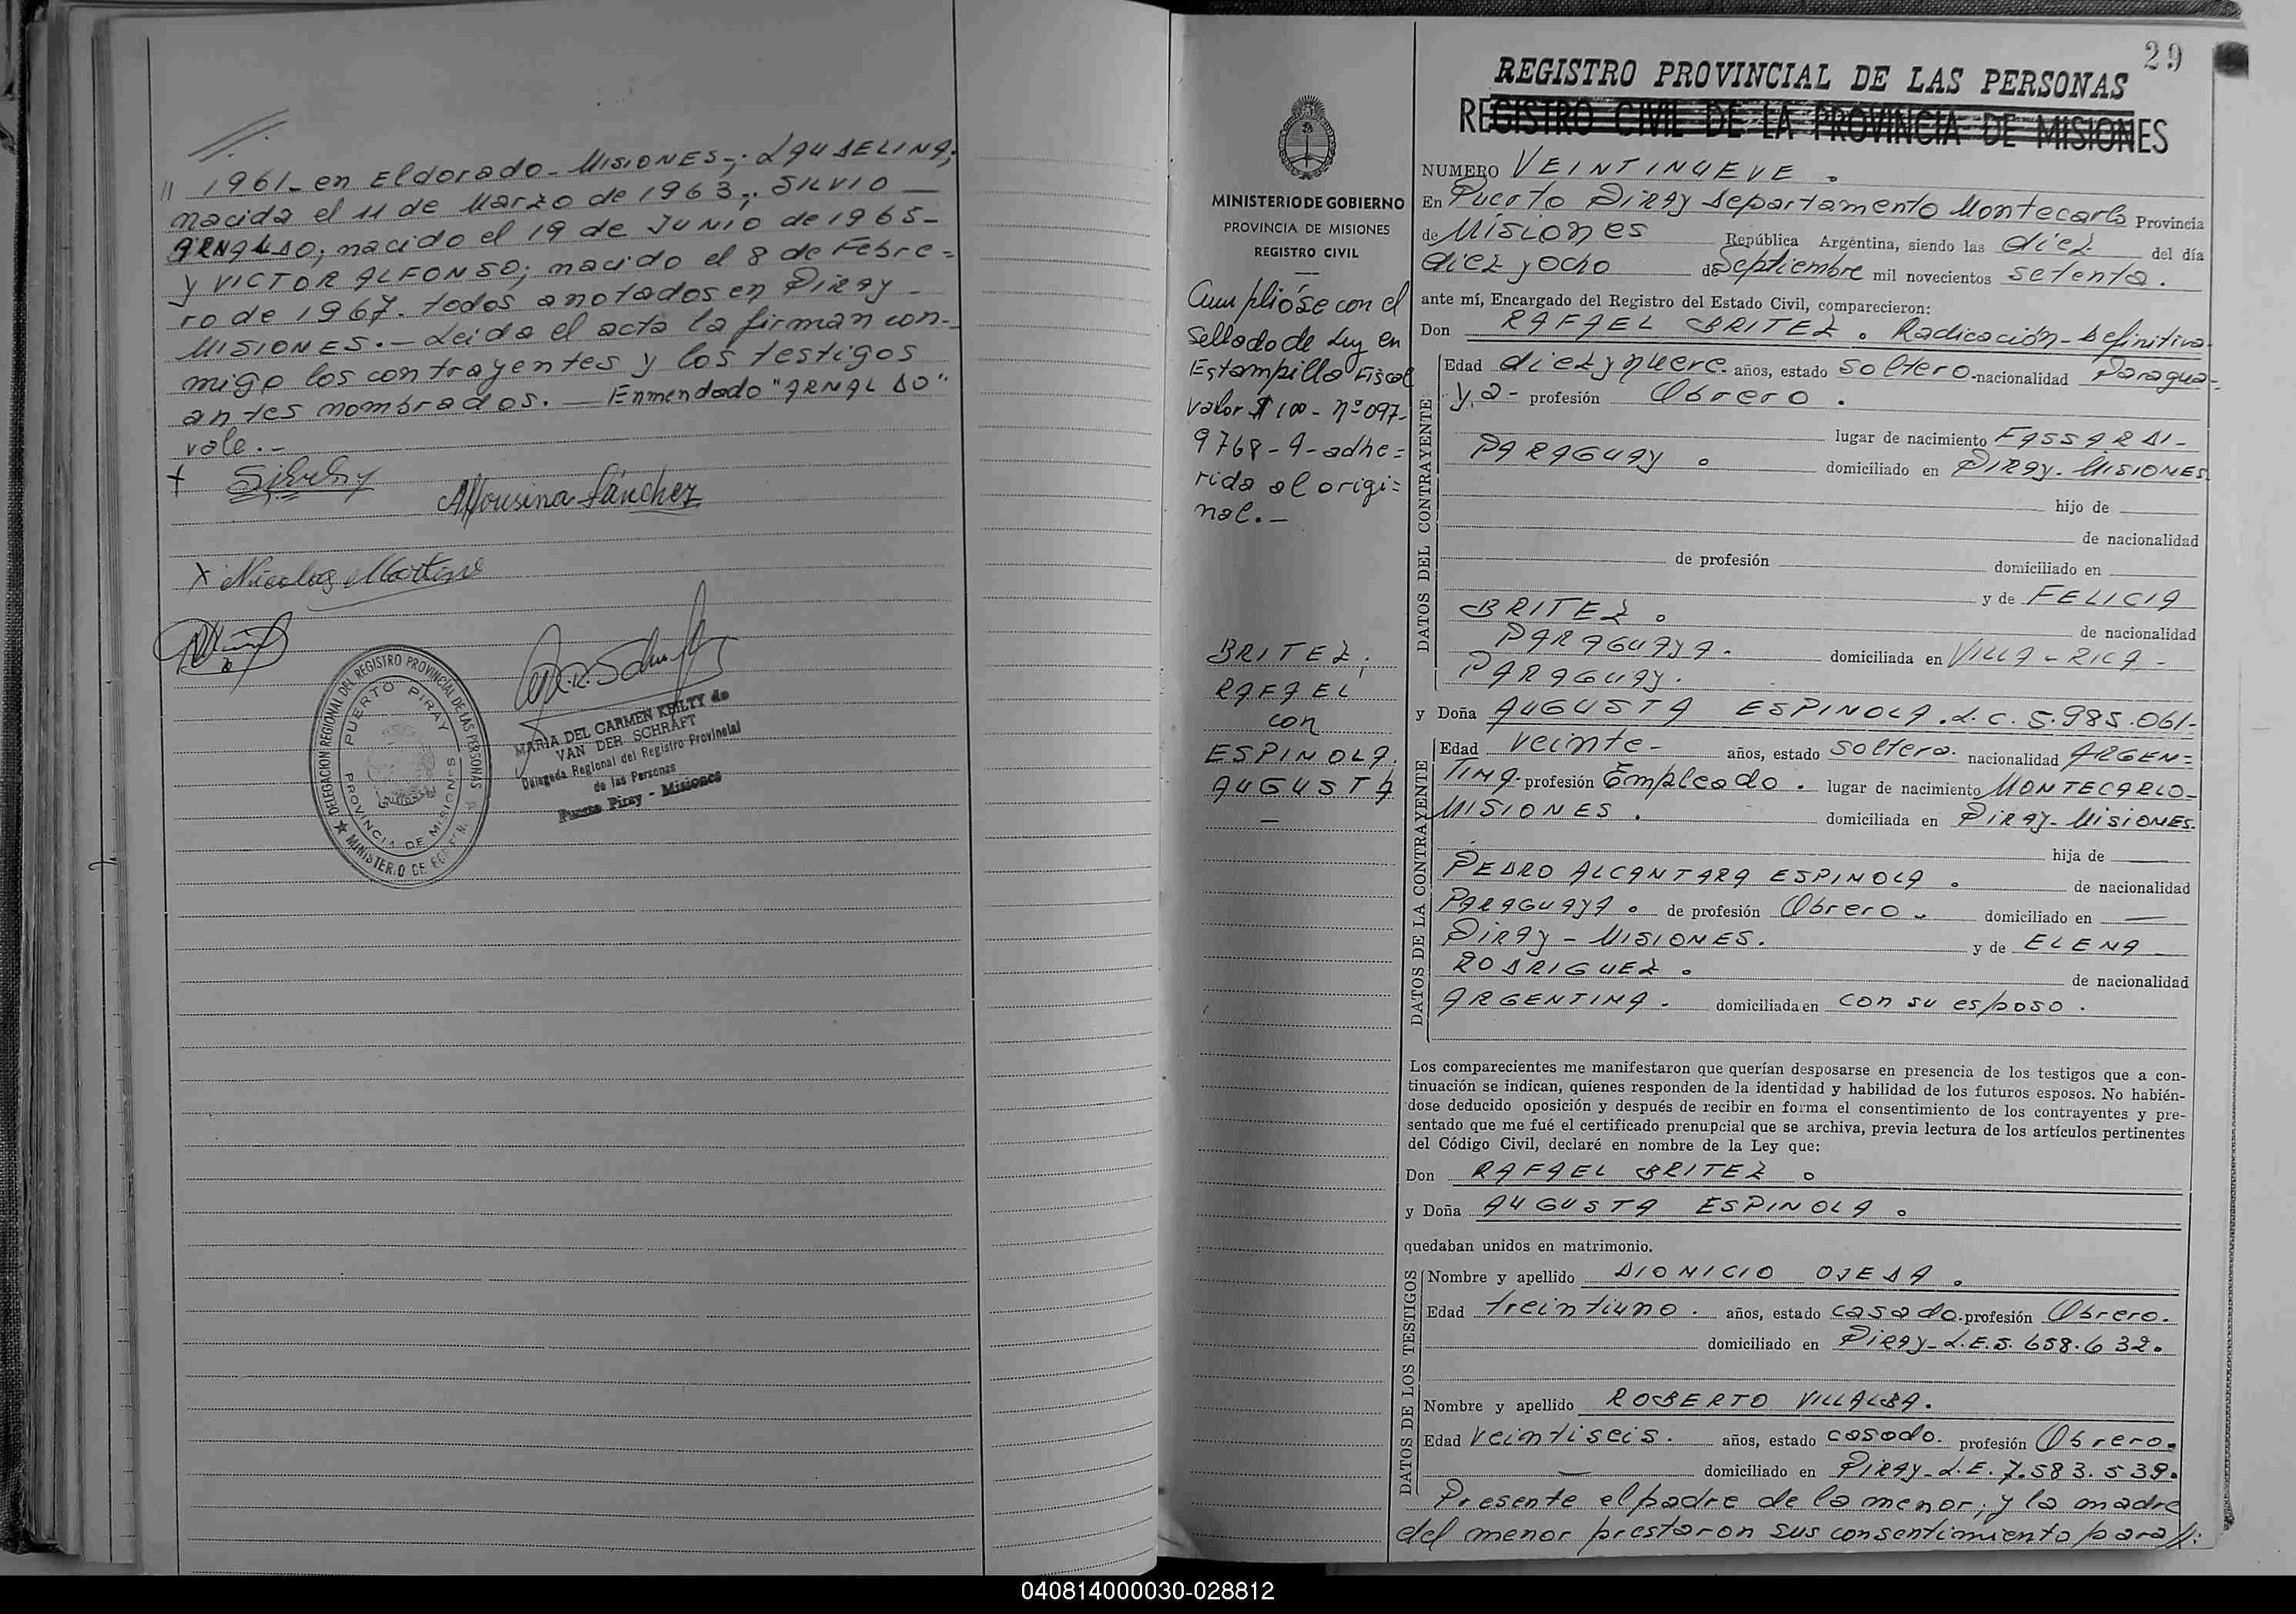 //.
// 1961- en Eldorado- MISIONES-; LAUDELINA;
nacida el 11 de Marzo de 1963-; SILVIO
ARNALDO; nacido el 19 de JUNIO de 1965-
y VICTOR ALFONSO; nacido el 8 de Febre=
ro de 1967. todos anotados en PIRAY-
MISIONES.- Leida el acta la firman con-
migo los contrayentes y los testigos
antes nombrados. — Enmendado "ARNALDO"
vale.-
+
Alfonsina Sánchez
X Nicolas Martinez
DELEGACION REGIONAL DEL REGISTRO PROVINCIAL DE LAS PERSONAS
PUERTO PIRAY
PROVINCIA DE MISIONES
★ MINISTERIO DE GOBIERNO
MARIA DEL CARMEN KEILTY de
VAN DER SCHRAFT
Delegada Regional del Registro Provincial
de las Personas
Puerto Piray - Misiones
29
REGISTRO PROVINCIAL DE LAS PERSONAS
REGISTRO CIVIL DE LA PROVINCIA DE MISIONES
MINISTERIO DE GOBIERNO
PROVINCIA DE MISIONES
REGISTRO CIVIL
Cumplióse con el
Sellado de Ley en
Estampilla Fiscal
valor $ 100- nº 097-
9768-A-adhe=
rida al origi=
nal.-
BRITEZ;
RAFAEL
con
ESPINOLA.
AUGUSTA
—
NUMERO VEINTINUEVE.
En Puerto Piray Departamento Montecarlo Provincia
de Misiones República Argentina, siendo las diez del día
diez y ocho de Septiembre mil novecientos setenta.
ante mí, Encargado del Registro del Estado Civil, comparecieron:
Don RAFAEL BRITEZ. Radicación-Definitiva
DATOS DEL CONTRAYENTE
Edad diez y nueve. años, estado soltero. nacionalidad Paragua-
ya- profesión Obrero.
lugar de nacimiento FASSARDI-
PARAGUAY. domiciliado en PIRAY-MISIONES
hijo de
de nacionalidad
de profesión domiciliado en
y de FELICIA
BRITEZ. de nacionalidad
PARAGUAYA. domiciliada en VILLA-RICA-
PARAGUAY.
y Doña AUGUSTA ESPINOLA. L.C. 5.985.061-
DATOS DE LA CONTRAYENTE
Edad veinte- años, estado soltera. nacionalidad ARGEN=
TINA. profesión Empleada. lugar de nacimiento MONTECARLO-
MISIONES. domiciliada en PIRAY-MISIONES.
hija de
PEDRO ALCANTARA ESPINOLA. de nacionalidad
PARAGUAYA. de profesión Obrero. domiciliado en —
PIRAY-MISIONES. y de ELENA
RODRIGUEZ. de nacionalidad
ARGENTINA. domiciliada en con su esposo.
Los comparecientes me manifestaron que querían desposarse en presencia de los testigos que a con-
tinuación se indican, quienes responden de la identidad y habilidad de los futuros esposos. No habién-
dose deducido oposición y después de recibir en forma el consentimiento de los contrayentes y pre-
sentado que me fué el certificado prenupcial que se archiva, previa lectura de los artículos pertinentes
del Código Civil, declaré en nombre de la Ley que:
Don RAFAEL BRITEZ.
y Doña AUGUSTA ESPINOLA.
quedaban unidos en matrimonio.
DATOS DE LOS TESTIGOS
Nombre y apellido DIONICIO OJEDA.
Edad treintiuno. años, estado casado. profesión Obrero.
domiciliado en PIRAY-L.E.5.658.632.
Nombre y apellido ROBERTO VILLALBA.
Edad veintiseis. años, estado casado. profesión Obrero.
domiciliado en PIRAY-L.E. 7.583.539.
Presente el padre de la menor; y la madre
del menor prestaron sus consentimiento para //:
040814000030-028812